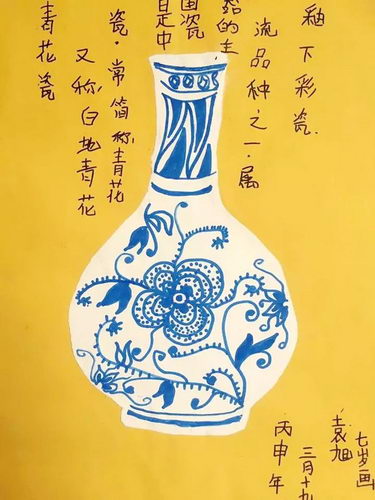 青花瓷
又称白地青花
瓷·常简称青花
是中
国瓷
器的主
流品种之一·属
釉下彩瓷.
丙申年
三月十九
袁旭
七岁画